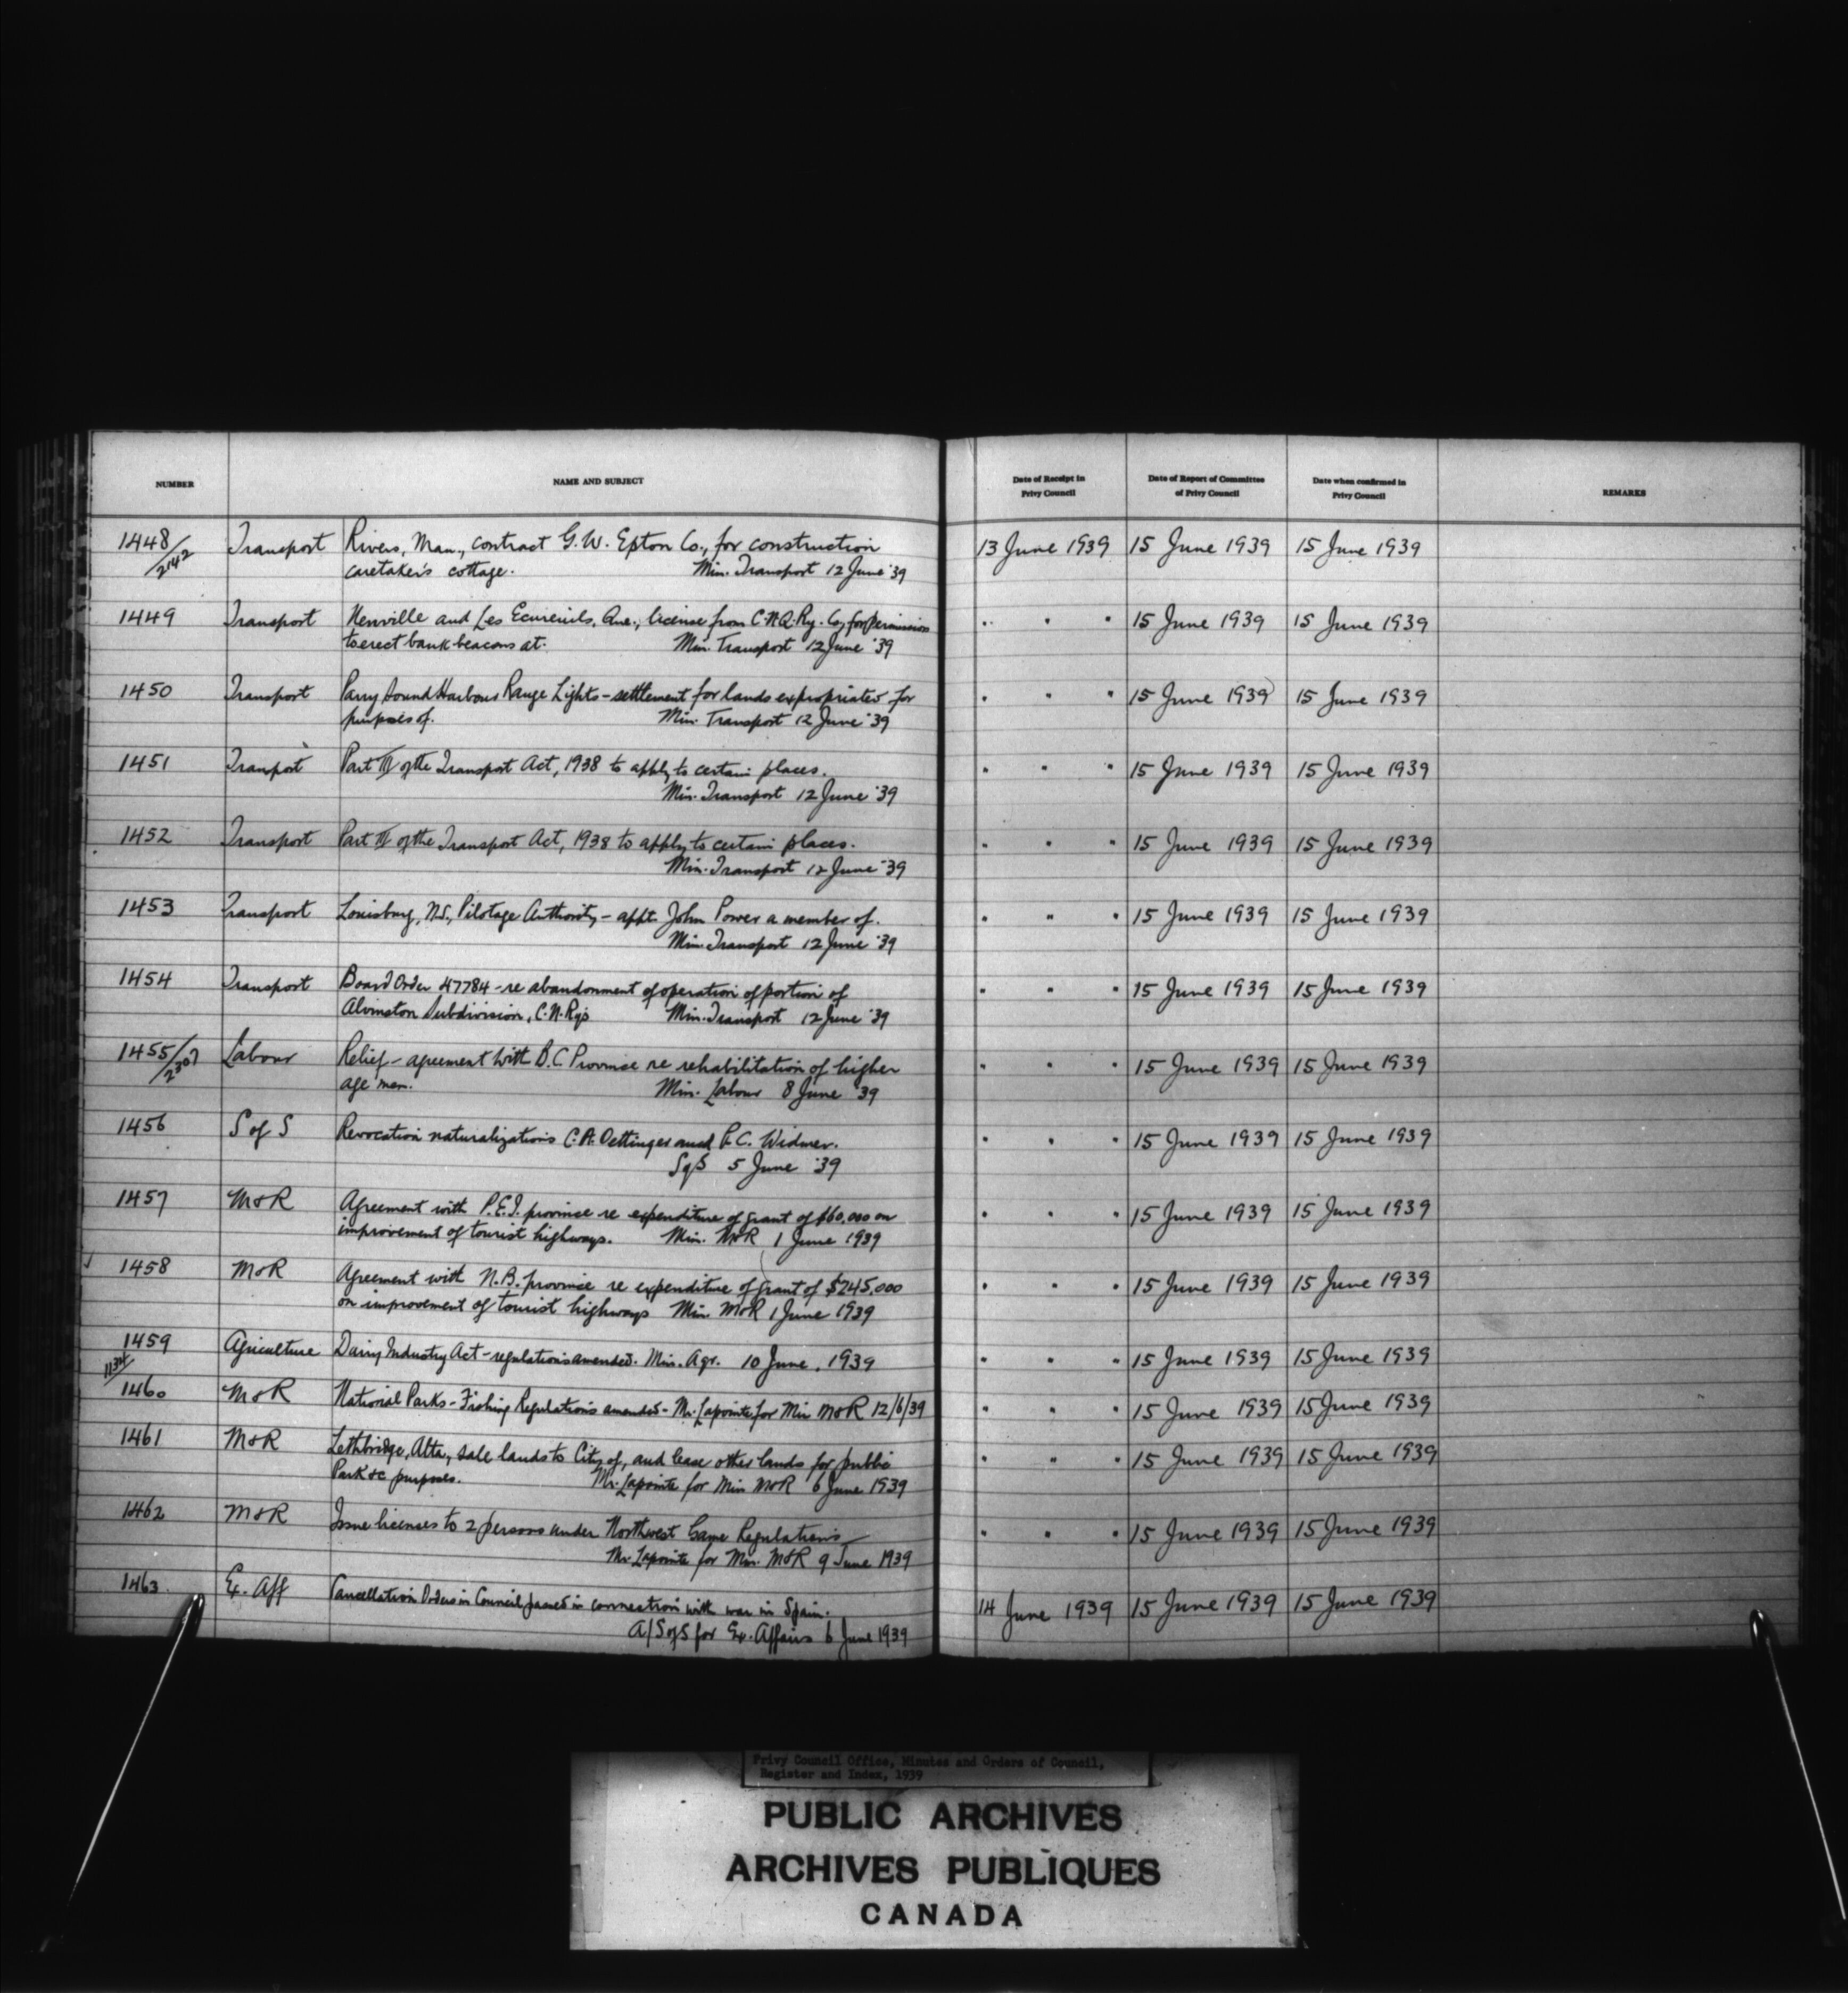 NUMBER NAME AND SUBJECT Date of Receipt in Privy Council Date of Report of Committee of Privy Council Date when confirmed in Privy Council REMARKS
1448/2142 Transport Rivers, Man., contract G.W. Epton Co., for construction 13 June 1939 15 June 1939 15 June 1939
caretaker's cottage. Min. Transport 12 June '39
1449 Transport Neuville and Les Ecureuils, Que., license from C.N.Q.Ry. Co. for permission " " " 15 June 1939 15 June 1939
to erect bank beacons at. Min. Transport 12 June '39
1450 Transport Parry Sound Harbour Range Lights - settlement for lands expropriated for " " " 15 June 1939 15 June 1939
purposes of. Min. Transport 12 June '39
1451 Transport Part of the Transport Act, 1938 to apply to certain places. " " " 15 June 1939 15 June 1939
Min. Transport 12 June '39
1452 Transport Part of the Transport Act, 1938 to apply to certain places. " " " 15 June 1939 15 June 1939
Min. Transport 12 June '39
1453 Transport Louisburg, N.S., Pilotage Authority - appt. John Power a member of. " " " 15 June 1939 15 June 1939
Min. Transport 12 June '39
1454 Transport Board Order 47784 - re abandonment of operation of portion of " " " 15 June 1939 15 June 1939
Alvinston Subdivision, C.N.Rys Min. Transport 12 June '39
1455/2307 Labour Relief - agreement with B.C. Province re rehabilitation of higher " " " 15 June 1939 15 June 1939
age men. Min. Labour 8 June '39
1456 S of S Revocation naturalizations C.A. Oettinger and P.C. Widmer. " " " 15 June 1939 15 June 1939
S of S 5 June '39
1457 M&R Agreement with P.E.I. province re expenditure of grant of $60,000 on " " " 15 June 1939 15 June 1939
improvement of tourist highways. Min. M&R 1 June 1939
1458 M&R Agreement with N.B. province re expenditure of grant of $245,000 " " " 15 June 1939 15 June 1939
on improvement of tourist highways Min. M&R 1 June 1939
1459 Agriculture Dairy Industry Act - regulations amended. Min. Agr. 10 June, 1939 " " " 15 June 1939 15 June 1939
1460 M&R National Parks - Fishing Regulations amended - Mr. Lapointe for Min M&R 12/6/39 " " " 15 June 1939 15 June 1939
1461 M&R Lethbridge, Alta, sale lands to City of, and lease other lands for public " " " 15 June 1939 15 June 1939
Park &c purposes. Mr. Lapointe for Min M&R 6 June 1939
1462 M&R Issue licenses to 2 persons under Northwest Game Regulations " " " 15 June 1939 15 June 1939
Mr. Lapointe for Min. M&R 9 June 1939
1463 Ex. Aff Cancellation Orders in Council passed in connection with war in Spain. 14 June 1939 15 June 1939 15 June 1939
A/S of S for Ex. Affairs 6 June 1939
Privy Council Office, Minutes and Orders of Council,
Register and Index, 1939
PUBLIC ARCHIVES
ARCHIVES PUBLIQUES
CANADA